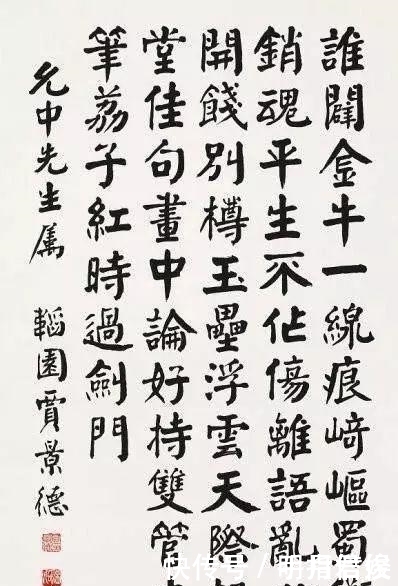 誰闢金牛一線痕崎嶇蜀
銷魂平生不作傷離語亂
開餞別樽玉壘浮雲天際
堂佳句畫中論好持雙管
筆荔子紅時過劍門
允中先生属 韜園賈景德
快传号/